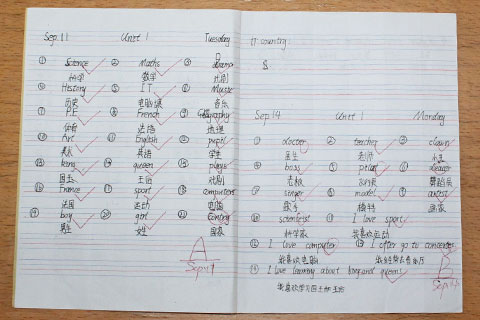 Sep 11 Unit 1 Tuesday
① Science ② Maths ③ drama
科学 数学 戏剧
④ History ⑤ IT ⑥ Music
历史 电脑课 音乐
⑦ P.E ⑧ French ⑨ Geography
体育 法语 地理
⑩ Art ⑪ English ⑫ pupil
美术 英语 学生
⑬ kings ⑭ queen ⑮ plays
国王 王后 戏剧
⑯ France ⑰ sport ⑱ computers
法国 运动 电脑
⑲ boy ⑳ girl country
男生 女生 国家
A
Sep 11
country:
Sep 14 Unit 1 Monday
① doctor ② teacher ③ clown
医生 老师 小丑
④ boss ⑤ pilot ⑥ dancer
老板 飞行员 舞蹈员
⑦ singer ⑧ model ⑨ artist
歌手 模特 画家
⑩ scientist ⑪ I love sport
科学家 我喜欢运动
⑫ I love computer ⑬ I often go to concerts
我喜欢电脑
⑭ I love learning about kings and queens
我喜欢学习国王和王后
B